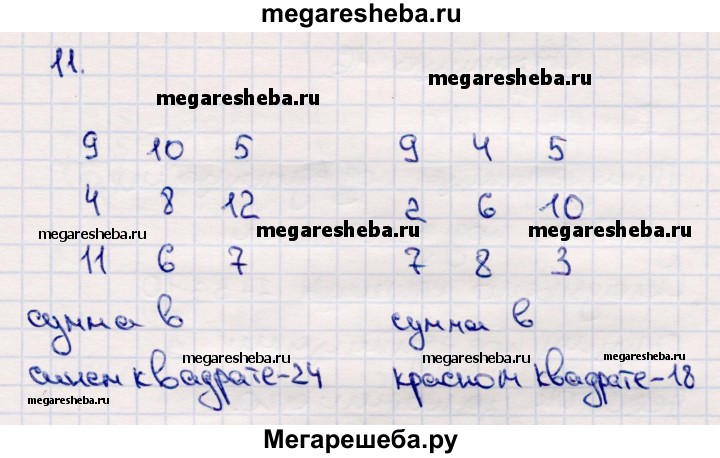 megaresheba.ru
11.
megaresheba.ru
megaresheba.ru
9 10 5 9 4 5
4 8 12 2 6 10
megaresheba.ru
megaresheba.ru
megaresheba.ru
11 6 7 7 8 3
сумма в сумма в
megaresheba.ru
megaresheba.ru
megaresheba.ru
синем квадрате-24 красном квадрате-18
megaresheba.ru
Мегарешеба.ру